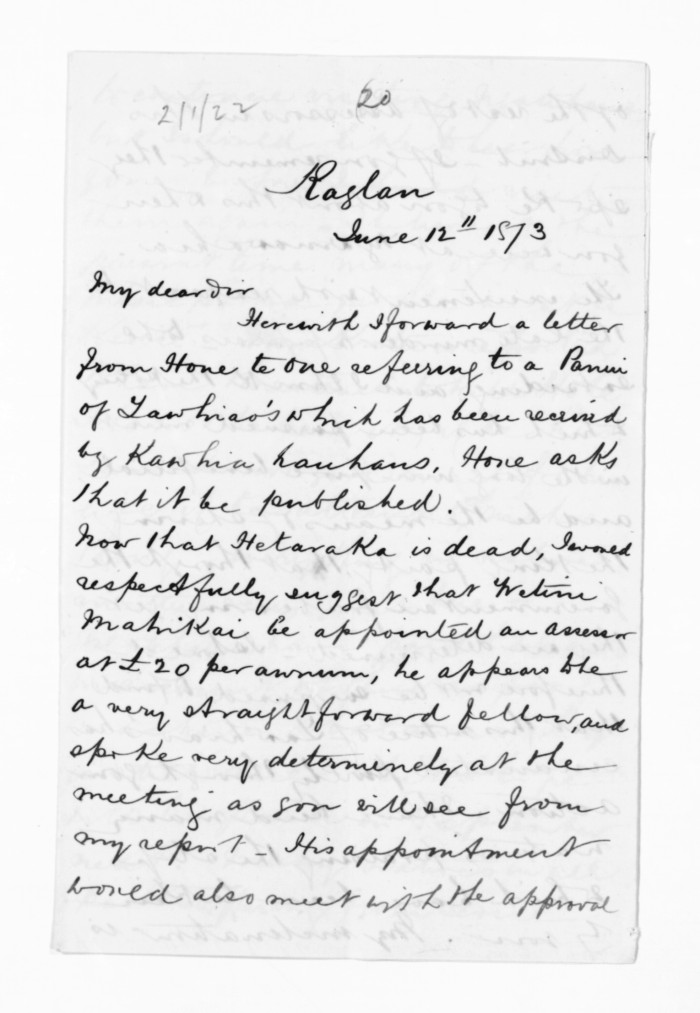 2/1/22
20
Raglan
June 12" 1873
My dear Sir
Herewith I forward a letter
from Hone te One referring to a Panui
of Tawhiao's which has been received
by Kawhia hauhaus, Hone asks
that it be published.
Now that Hetaraka is dead, I would
respectfully suggest that Wetini
Mahikai be appointed an assessor
at £20 per annum, he appears to be
a very straightforward fellow, and
spoke very determinely at the
meeting as you will see from
my report - His appointment
would also meet with the approval